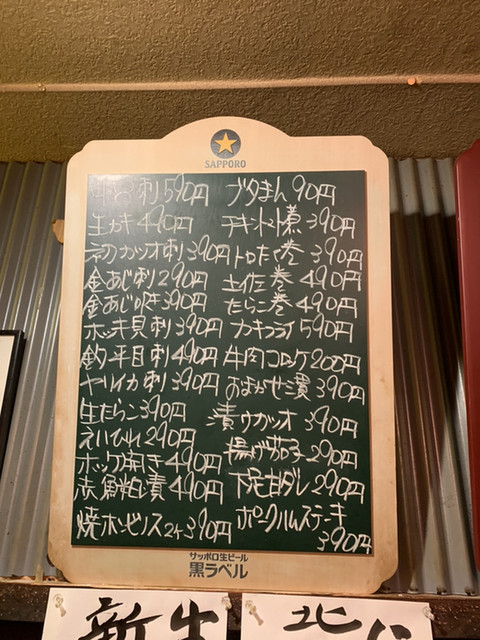 SAPPORO
刺 590円
生ガキ 490円
初ガツオ刺 390円
金あじ刺 290円
金あじ 390円
ホッキ貝刺 390円
釣平目刺 490円
ヤリイカ刺 390円
生たらこ 390円
えいひれ 290円
ホッケ開き 490円
赤魚粕漬 490円
焼ホンビノス2ケ 390円
ブタまん 90円
チキントマト煮 390円
トロたく巻 390円
土佐巻 490円
たらこ巻 490円
カキフライ 590円
牛肉コロッケ 200円
おまかせ漬 390円
漬カツオ 390円
揚げ茄子 290円
下足甘ダレ 290円
ポークハムステーキ
390円
サッポロ生ビール
黒ラベル
新生
北